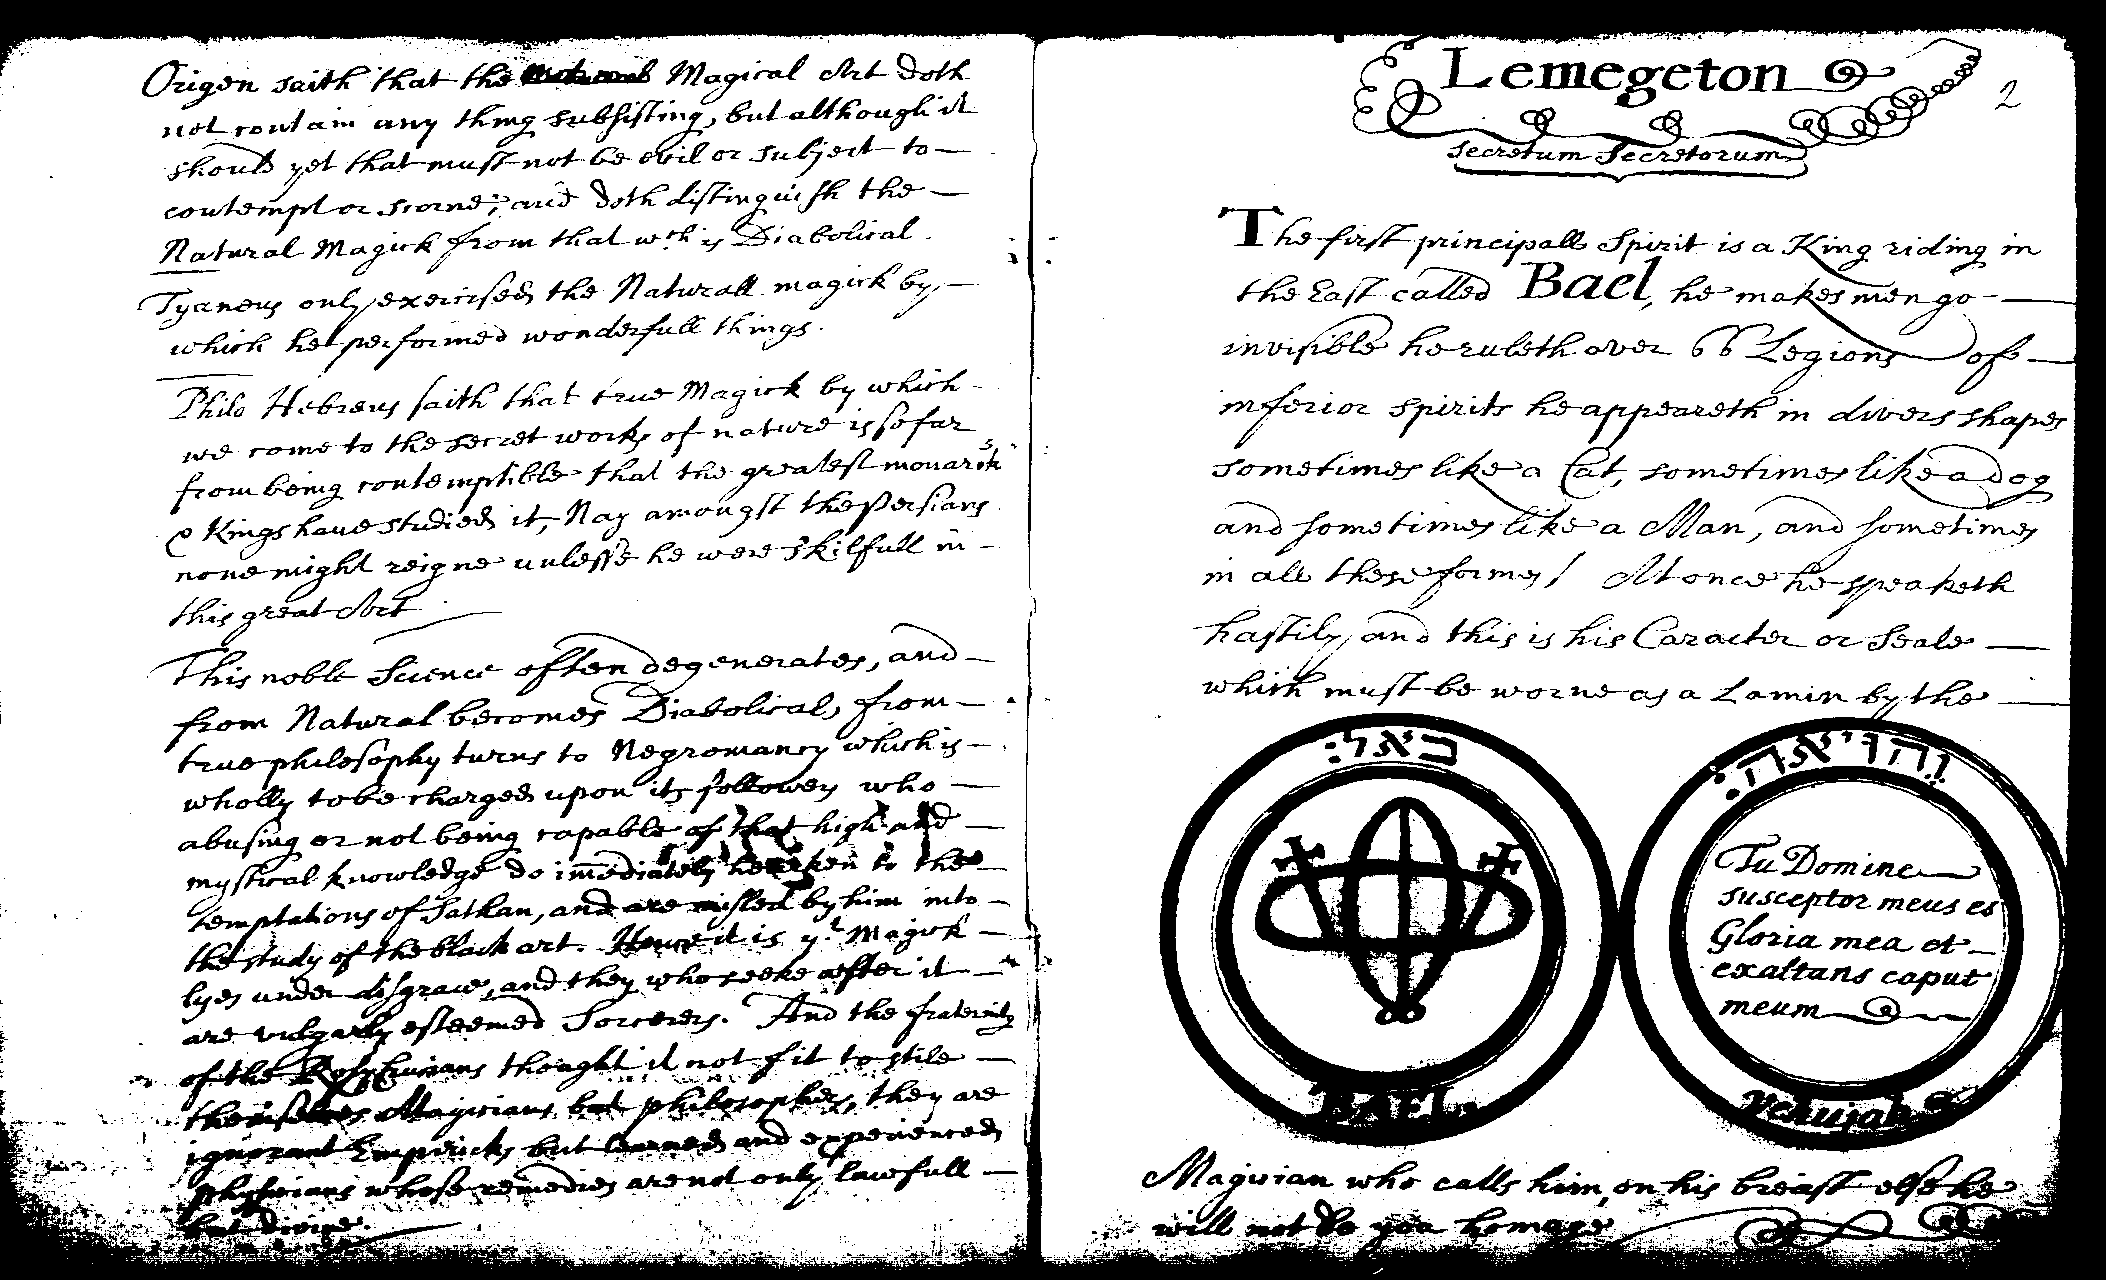 Origen saith that the Magical Art doth
not contain any thing subsisting, but although it
should yet that must not be evil or subject to
contempt or scorne; and doth distinguish the
Natural Magick from that wch is Diabolical.
Tyaneus only exercised the Naturall magick by
which he performed wonderfull things.
Philo Hebreus saith that true Magick by which
we come to the secret works of nature is so far
from being contemptible that the greatest monarchs
& Kings have studied it, Nay amongst the Persians
none might reigne unlesse he were skilfull in
this great Art
This noble Science often degenerates, and
from Natural becomes Diabolical, from
true philosophy turns to Negromancy which is
wholly to be charged upon its followers who
abusing or not being capable of that high and
mystical knowledge do imediately hearken to the
temptations of Sathan, and are misled by him into
the study of the black art. Hence it is yt Magick
lyes under disgrace, and they who seeke after it
are vulgarly esteemed Sorcerers. And the fraternity
of the thought it not fit to stile
themselves Magicians, but philosophers, they are
ignorant Empiricks but learned and experienced
physicians whose remedies are not only lawfull
but divine.
Lemegeton
2
secretum Secretorum
The first principall Spirit is a King riding in
the East called Bael, he makes men go
invisible he ruleth over 66 Legions of
inferior spirits he appeareth in divers shapes
sometimes like a Cat, sometimes like a dog
and sometimes like a Man, and sometimes
in all these formes / At once he speaketh
hastily, and this is his Caracter or Seale
which must be worne as a Lamin by the
באל:
BAEL
והויאה:
Tu Domine
susceptor meus es
Gloria mea et
exaltans caput
meum
Vehujah
Magician who calls him, on his breast else he
will not do you homage